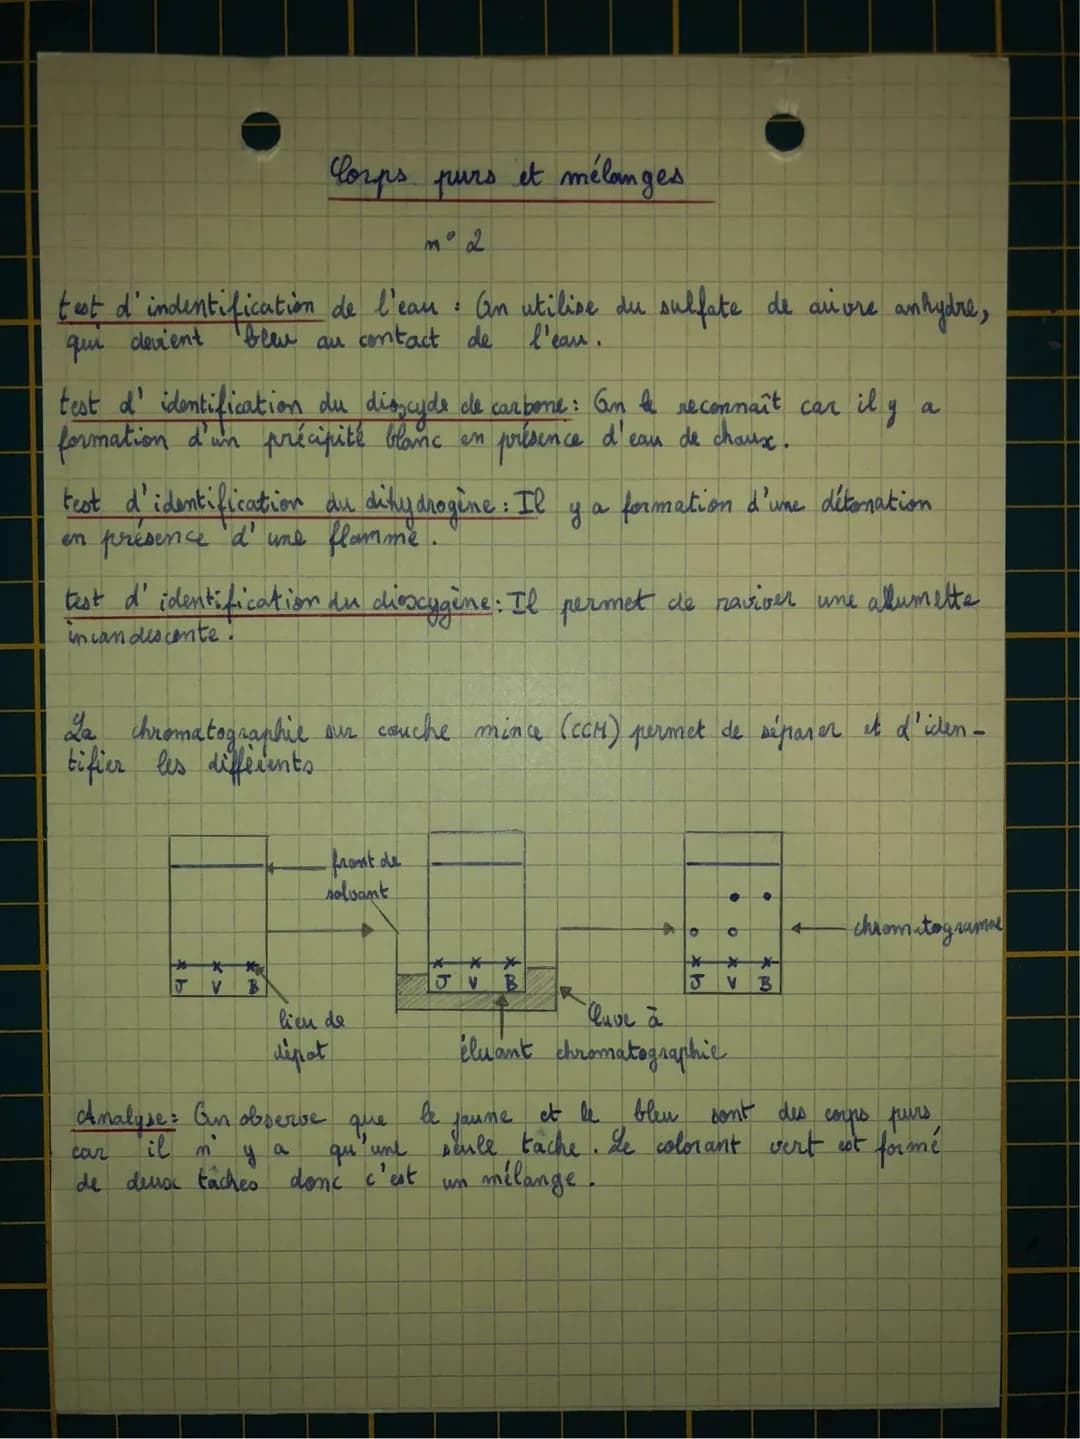 Corps purs et mélanges
n° 2
test d'indentification de l'eau : On utilise du sulfate de cuivre anhydre,
qui devient bleu au contact de l'eau.
test d'identification du dioxcyde de carbone : On le reconnaît car il y a
formation d'un précipité blanc en présence d'eau de chaux.
test d'identification du dihydrogène : Il y a formation d'une détonation
en présence d'une flamme.
test d'identification du dioxcygène : Il permet de raviver une allumette
incandescente.
La chromatographie sur couche mince (CCM) permet de séparer et d'iden-
tifier les différents
front de
solvant
chromatogramme
J V B
J V B
J V B
lieu de
dépot
Cuve à
chromatographie
éluant
Analyse : On observe que le jaune et le bleu sont des corps purs
car il n'y a qu'une seule tâche. Le colorant vert est formé
de deux tâches donc c'est un mélange.